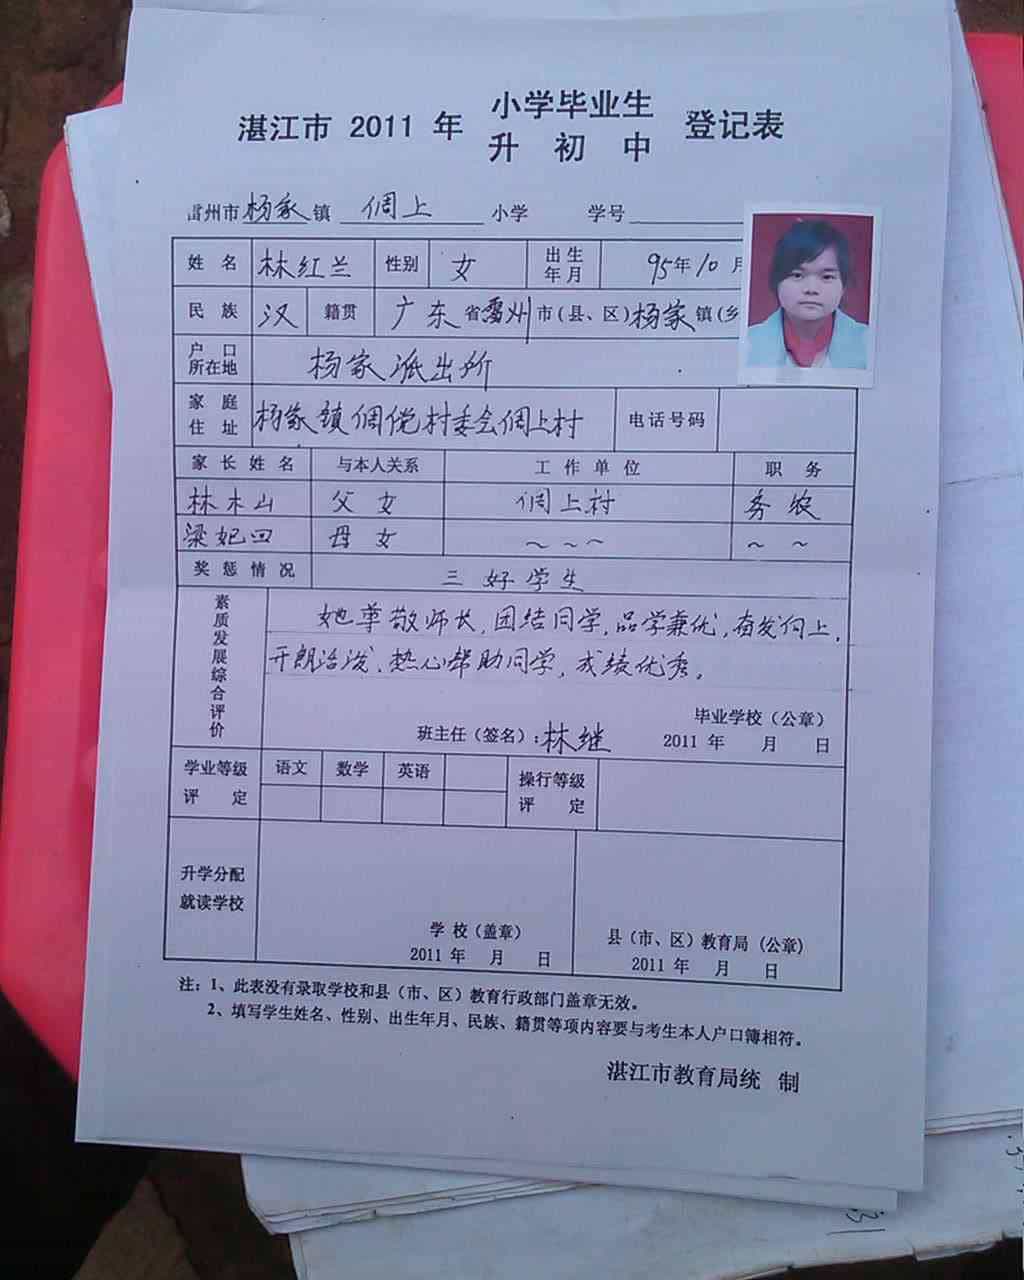 湛江市 2011 年 小学毕业生 升 初 中 登记表
雷州市杨家镇 倜上 小学 学号
姓 名 林红兰 性别 女 出生年月 95年10月
民 族 汉 籍贯 广东省雷州市(县、区)杨家镇(乡
户 口 所在地 杨家派出所
家 庭 住 址 杨家镇倜侊村委会倜上村 电话号码
家 长 姓 名 与本人关系 工 作 单 位 职 务
林木山 父女 倜上村 务农
梁妃四 母女 ~ ~ ~ ~ ~
奖 惩 情 况 三好学生
素质发展综合评价
她尊敬师长,团结同学,品学兼优,奋发向上,
开朗活泼、热心帮助同学,成绩优秀。
毕业学校(公章)
班主任(签名):林继 2011 年 月 日
学业等级 评 定 语文 数学 英语 操行等级 评 定
升学分配
就读学校
学 校(盖章) 县(市、区)教育局(公章)
2011 年 月 日 2011 年 月 日
注:1、此表没有录取学校和县(市、区)教育行政部门盖章无效。
2、填写学生姓名、性别、出生年月、民族、籍贯等项内容要与考生本人户口簿相符。
湛江市教育局统 制